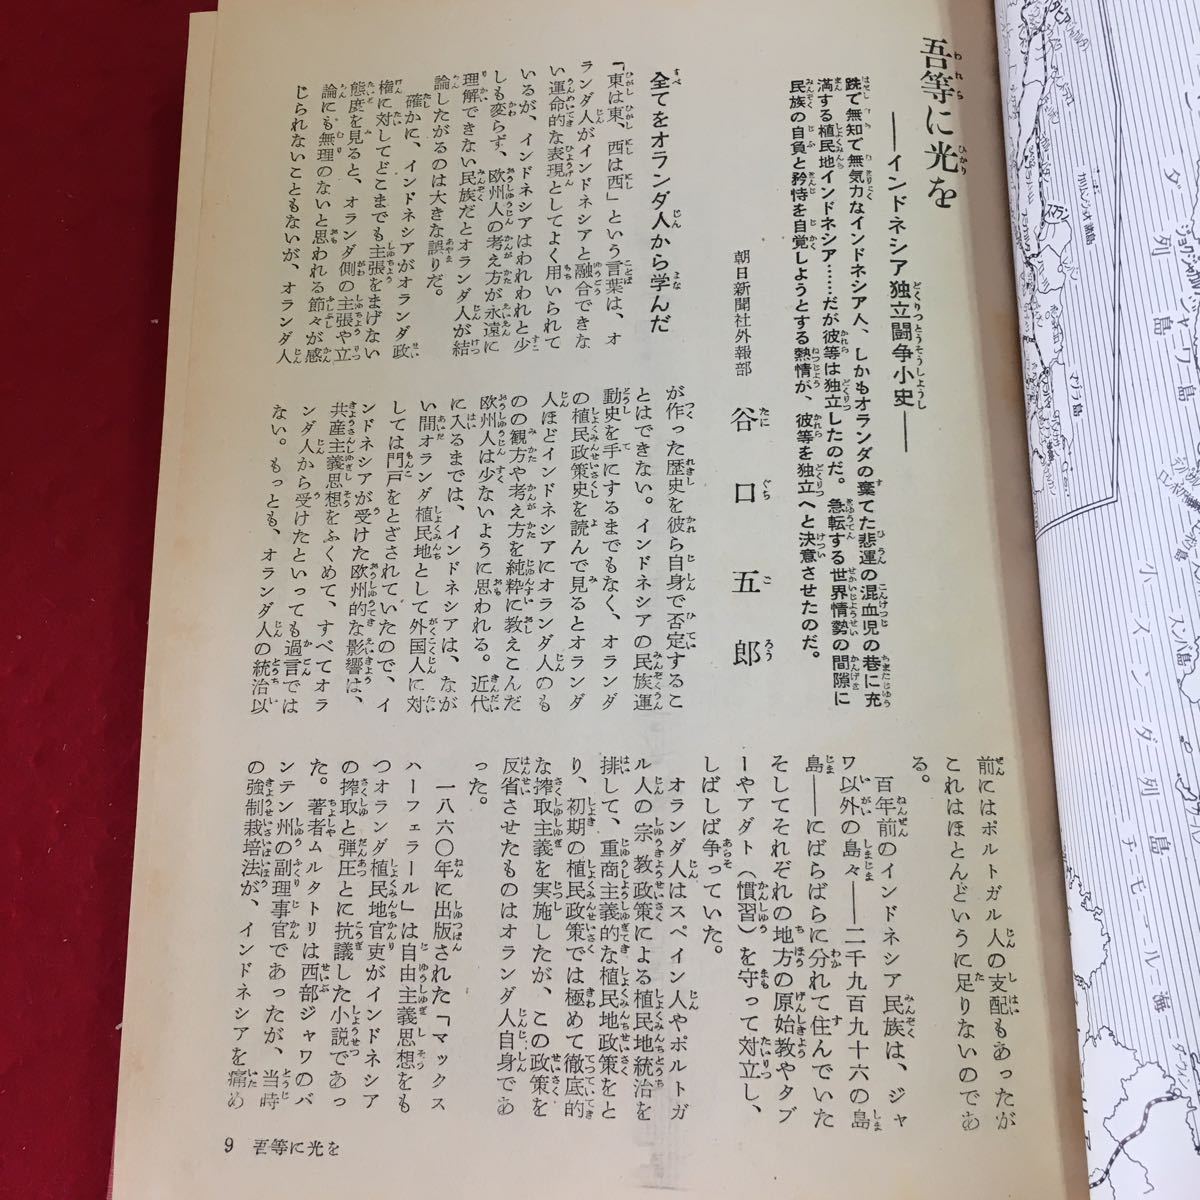 吾等に光を
――インドネシア独立闘争小史――
跣で無知で無気力なインドネシア人、しかもオランダの棄てた悲運の混血児の巷に充
満する植民地インドネシア……だが彼等は独立したのだ。急転する世界情勢の間隙に
民族の自負と矜恃を自覚しようとする熱情が、彼等を独立へと決意させたのだ。
朝日新聞社外報部　谷口五郎
全てをオランダ人から学んだ
「東は東、西は西」という言葉は、オ
ランダ人がインドネシアと融合できな
い運命的な表現としてよく用いられて
いるが、インドネシアはわれわれと少
しも変らず、欧州人の考え方が永遠に
理解できない民族だとオランダ人が結
論したがるのは大きな誤りだ。
確かに、インドネシアがオランダ政
権に対してどこまでも主張をまげない
態度を見ると、オランダ側の主張や立
論にも無理のないと思われる節々が感
じられないこともないが、オランダ人
が作った歴史を彼ら自身で否定するこ
とはできない。インドネシアの民族運
動史を手にするまでもなく、オランダ
の植民政策史を読んで見るとオランダ
人ほどインドネシアにオランダ人のも
のの観方や考え方を純粋に教えこんだ
欧州人は少ないように思われる。近代
に入るまでは、インドネシアは、なが
い間オランダ植民地として外国人に対
しては門戸をとざされていたので、イ
ンドネシアが受けた欧州的な影響は、
共産主義思想をふくめて、すべてオラ
ンダ人から受けたといっても過言では
ない。もっとも、オランダ人の統治以
前にはポルトガル人の支配もあったが
これはほとんどいうに足りないのであ
る。
百年前のインドネシア民族は、ジャ
ワ以外の島々――二千九百九十六の島
島――にばらばらに分れて住んでいた
そしてそれぞれの地方の原始教やタブ
ーやアダト（慣習）を守って対立し、
しばしば争っていた。
オランダ人はスペイン人やポルトガ
ル人の宗教政策による植民地統治を
排して、重商主義的な植民地政策をと
り、初期の植民政策では極めて徹底的
な搾取主義を実施したが、この政策を
反省させたものはオランダ人自身であ
った。
一八六〇年に出版された「マックス
ハーフェラール」は自由主義思想をも
つオランダ植民地官吏がインドネシア
の搾取と弾圧とに抗議した小説であっ
た。著者ムルタトリは西部ジャワのバ
ンテン州の副理事官であったが、当時
の強制栽培法が、インドネシアを痛め
9　吾等に光を